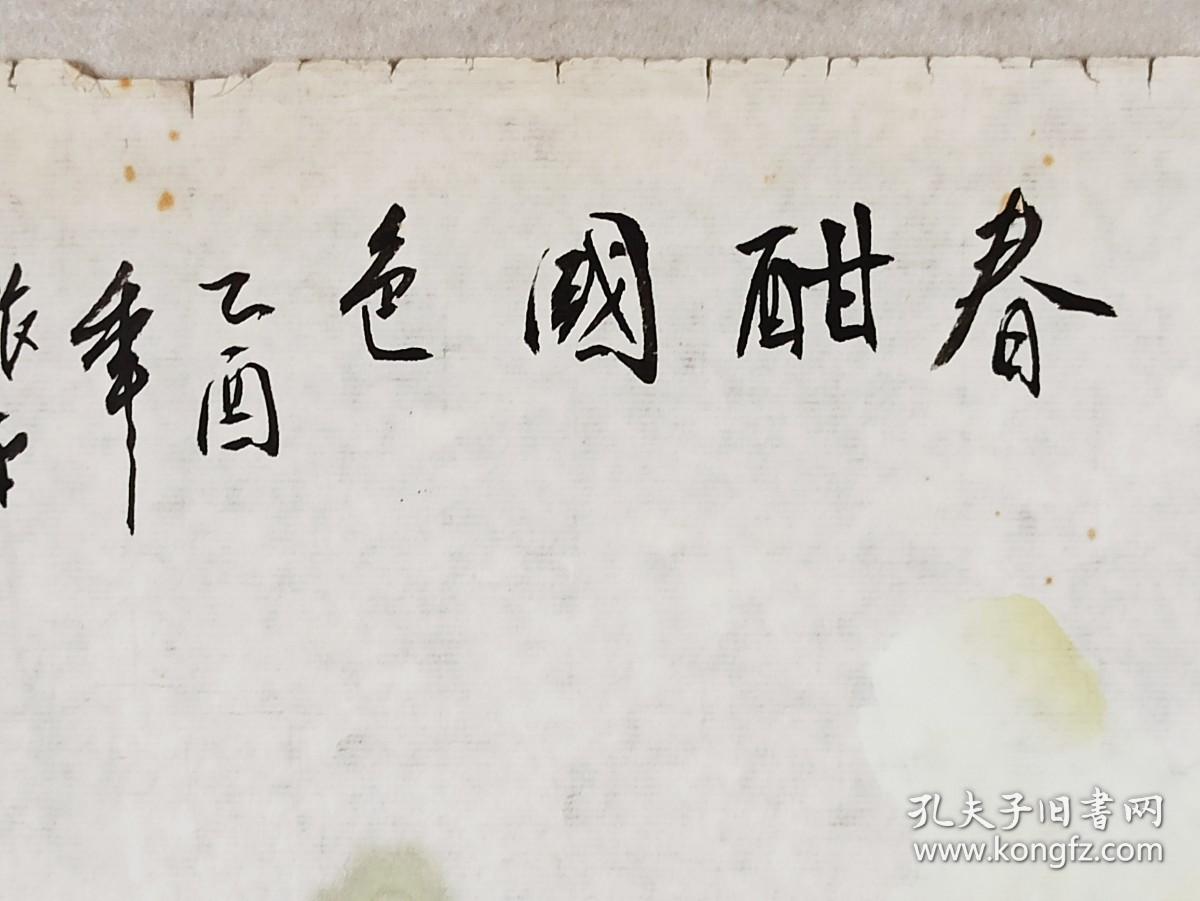 春酣國色
乙酉
年
孔夫子旧書网
www.kongfz.com